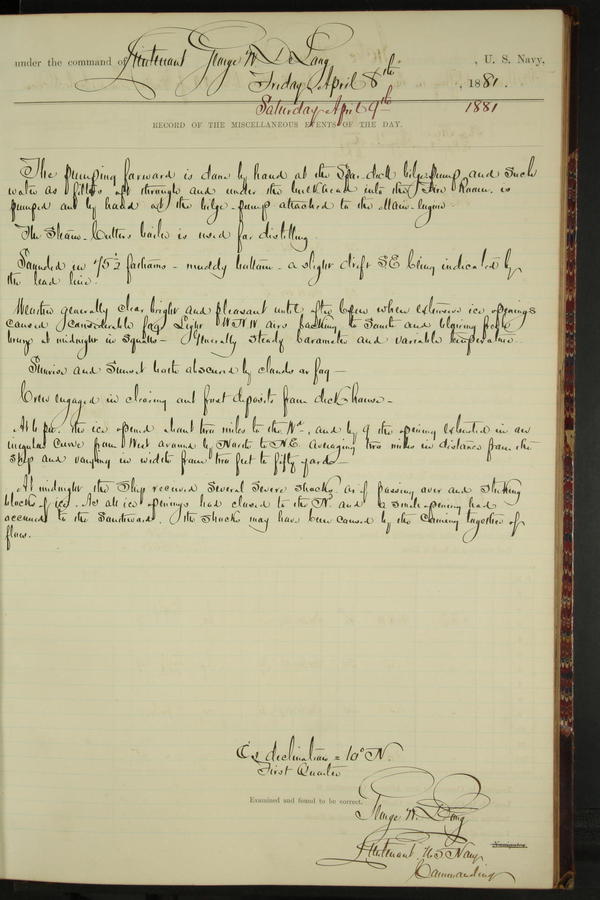 under the command of Lieutenant George W. De Long , U. S. Navy,
Friday April 8th , 1881.
Saturday April 9th 1881
RECORD OF THE MISCELLANEOUS EVENTS OF THE DAY.
The pumping forward is done by hand at the Spar-deck bilge-pump and such
water as filters aft through and under the bulkhead into the Fire Room, is
pumped out by hand at the bilge-pump attached to the Main-Engine
The Steam-Cutters boiler is used for distilling.
Sounded in 45 1/2 fathoms - muddy bottom - a slight drift SE being indicated by
the lead line.
Weather generally clear bright and pleasant until after 6 p.m. when extensive ice openings
caused considerable fog. Light WNW airs backing to South and blowing fresh
at midnight in squalls - Generally steady barometer and variable temperature.
Sunrise and Sunset both obscured by clouds or fog -
Crew engaged in clearing out frost deposits from deck house -
At 6 p.m. the ice opened about two miles to the Wd., and by 9 the opening extended in an
irregular curve from West around by North to NE averaging two miles in distance from the
Ship and varying in width from two feet to fifty yards -
At midnight the Ship received several severe shocks, as if passing over and striking
blocks of ice. As all ice openings had closed to the Nd. and a small opening had
occurred to the Southward, the shocks may have been caused by the coming together of
floes.
declination = 10° N.
First Quarter
Examined and found to be correct.
George W. De Long
Navigator.
Lieutenant U.S. Navy
Commanding